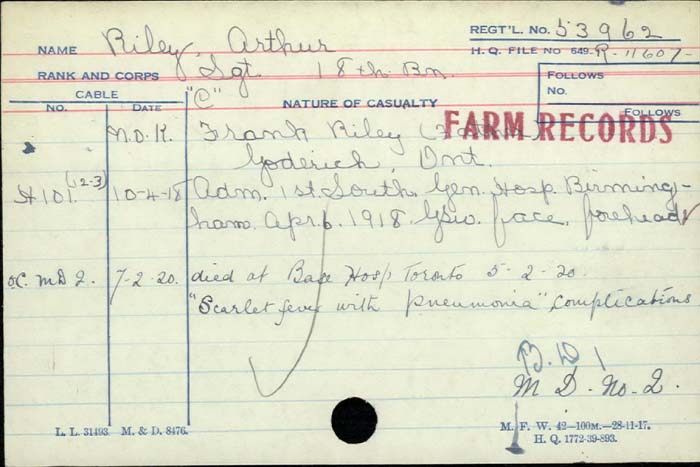 REGT'L. NO. 53962
NAME Riley, Arthur
H. Q. FILE NO 649-R-11607-
RANK AND CORPS Sgt 18th. Bn.
FOLLOWS
NO.
FOLLOWS
CABLE
NO. DATE
"C"
NATURE OF CASUALTY
FARM RECORDS
N.O.K. Frank Riley (Father)
Goderich, Ont.
A101 (2-3) 10-4-18 Adm. 1st South. Gen. Hosp. Birming-
ham. Apr. 6. 1918. Gsw. face, forehead
OC. MD 2. 7-2-20. died at Base Hosp Toronto 5-2-20.
"Scarlet fever with pneumonia" complications
B. D 1
M. D. No. 2.
L. L. 31493. M. & D. 8476.
M. F. W. 42—100M.—28-11-17.
H. Q. 1772-39-893.